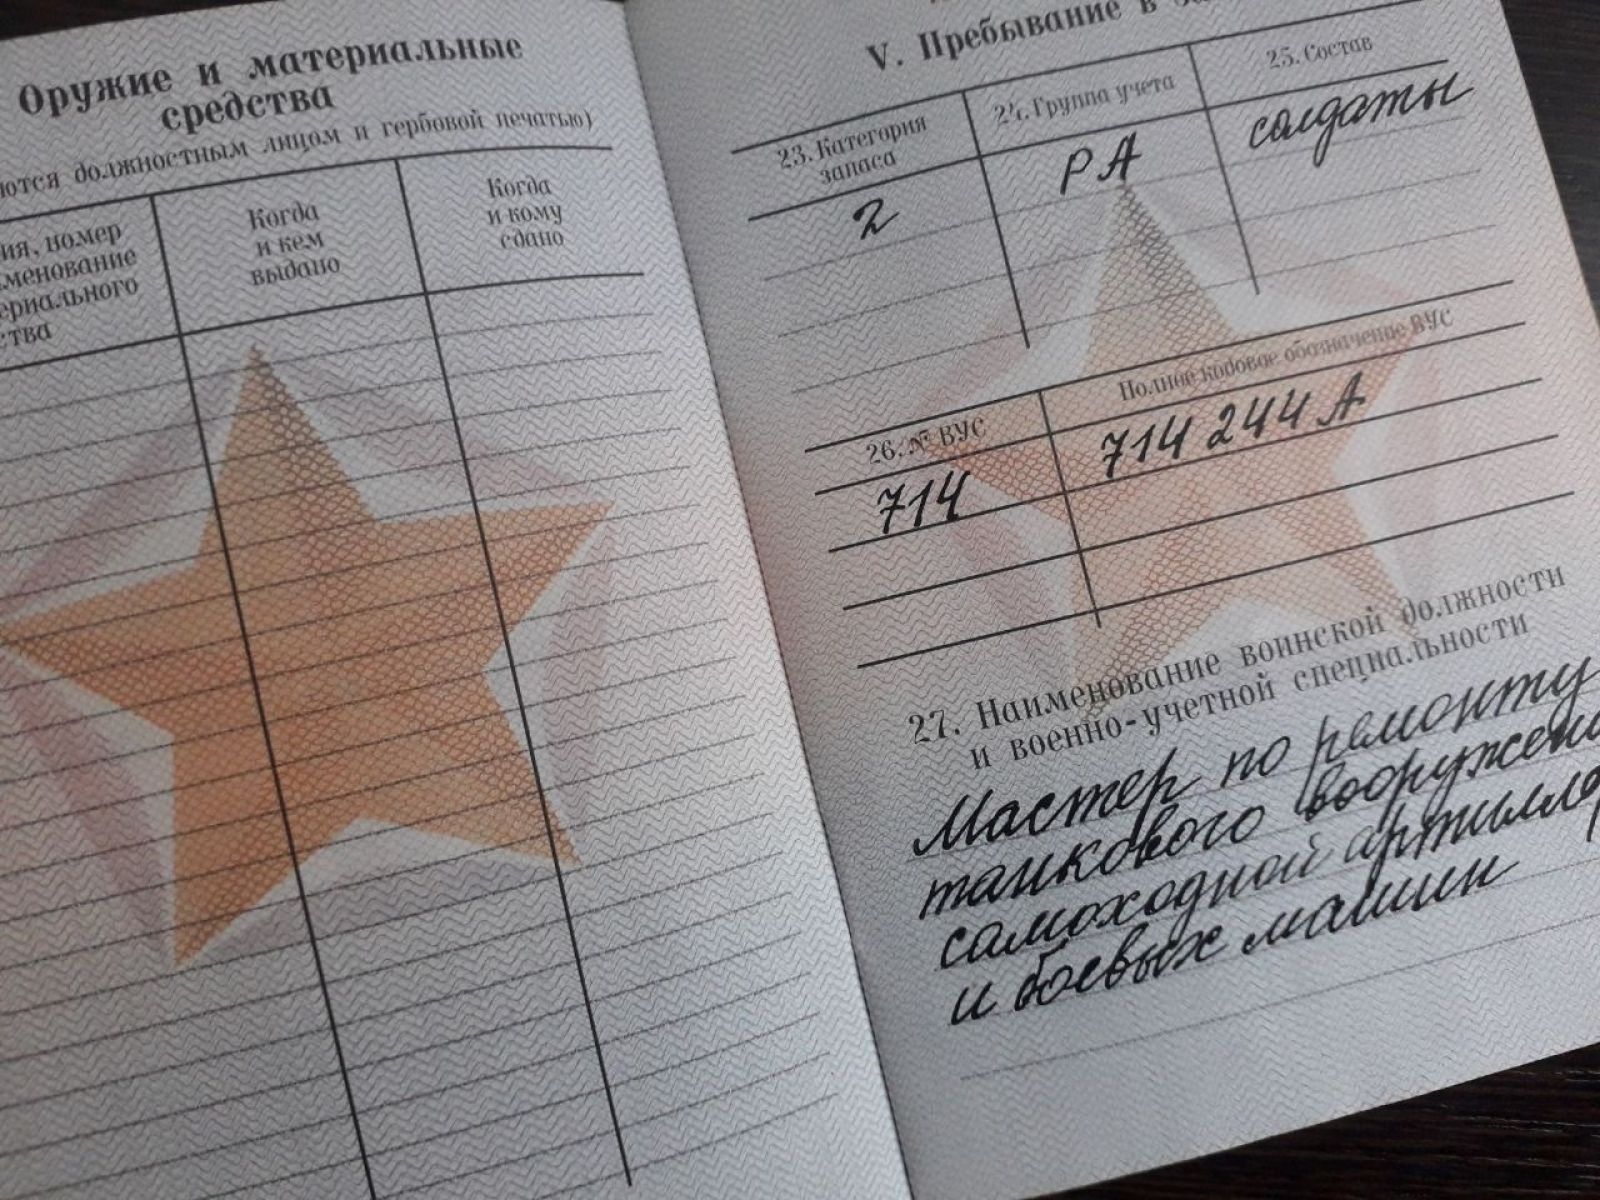 Оружие и материальные
средства
должностным лицом и гербовой печатью)
номер
Когда
и кем
выдано
Когда
и кому
сдано
V. Пребывание в
23. Категория
запаса
24. Группа учета
25. Состав
2
РА
солдаты
26. № ВУС
Полное кодовое обозначение ВУС
714
714 244 А
27. Наименование воинской должности
и военно-учетной специальности
Мастер по ремонту
танкового
самоходной
и боевых машин